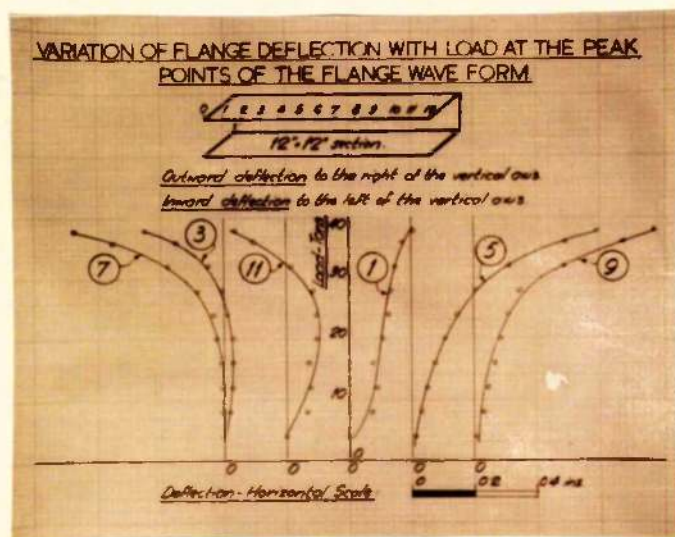 VARIATION OF FLANGE DEFLECTION WITH LOAD AT THE PEAK
POINTS OF THE FLANGE WAVE FORM
0 1 2 3 4 5 6 7 8 9 10 11 12
12" × 12" section.
Outward deflection to the right of the vertical axis
Inward deflection to the left of the vertical axis
7 3 11 1 5 9
Load-Tons
40
30
20
10
0
0 0 0 0 0
Deflection - Horizontal Scale
0 0.2 0.4 ins